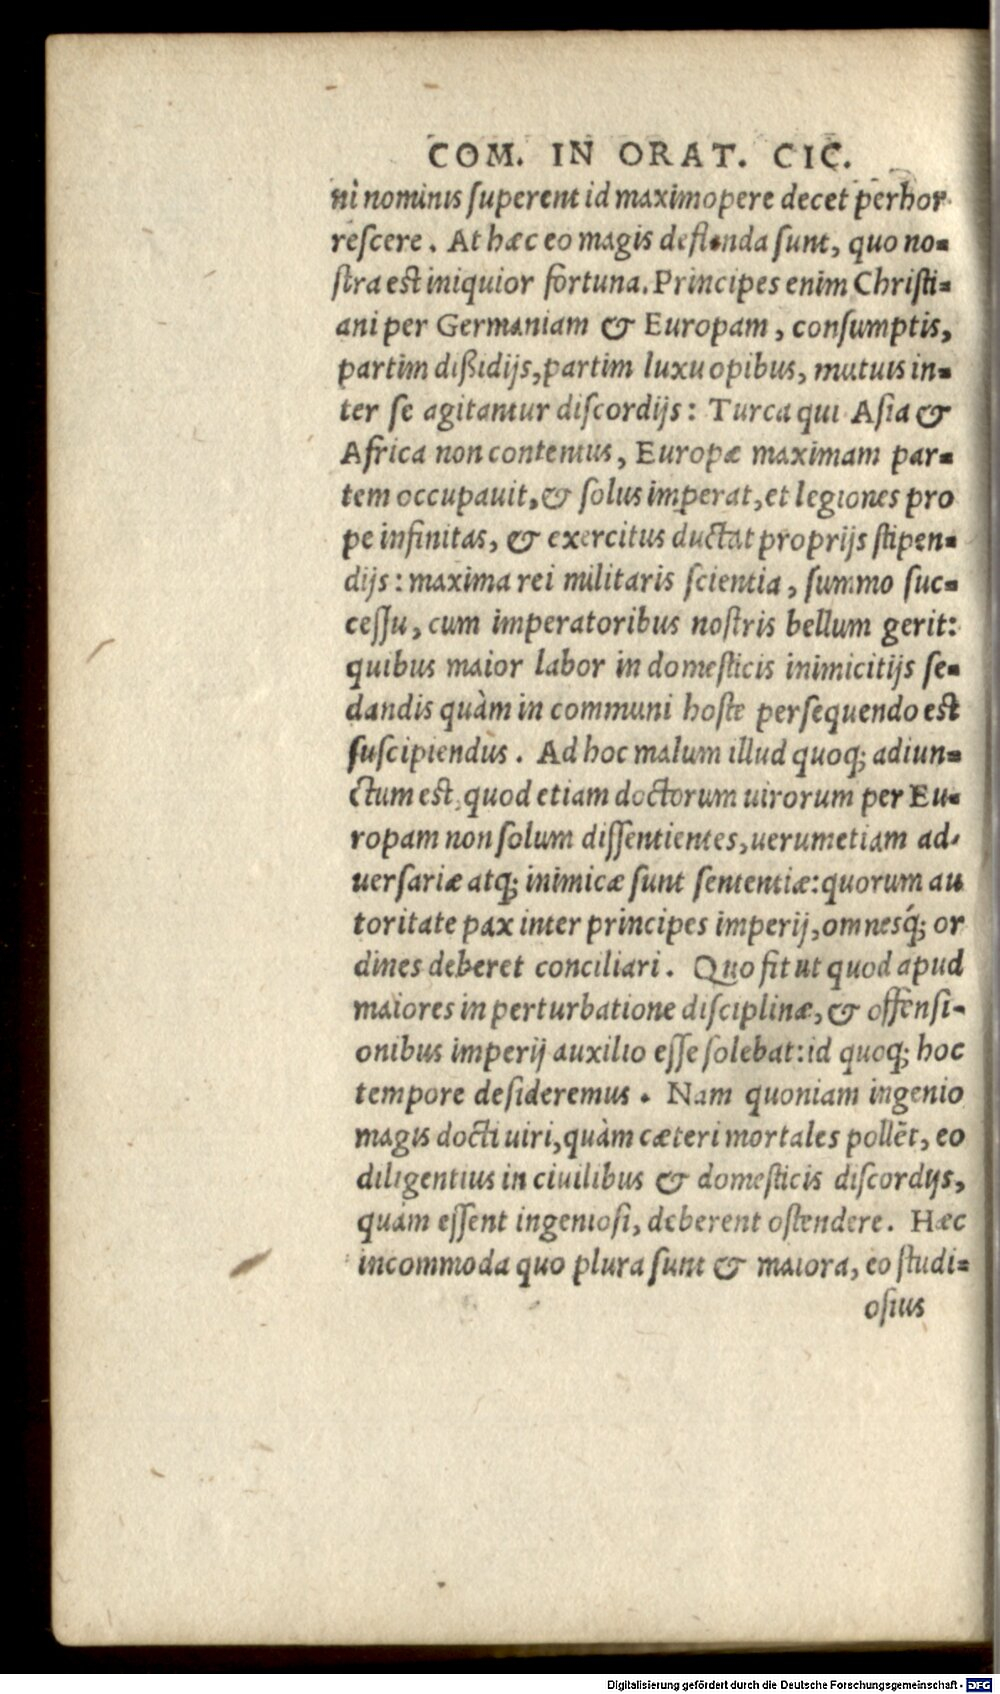 COM. IN ORAT. CIC.
ni nominis ſuperent id maximopere decet perhor
reſcere. At hæc eo magis deflenda ſunt, quo no=
ſtra est iniquior fortuna. Principes enim Chriſti=
ani per Germaniam & Europam, conſumptis,
partim dißidijs, partim luxu opibus, mutuis in=
ter ſe agitantur diſcordijs: Turca qui Aſia &
Africa non contentus, Europæ maximam par=
tem occupauit, & ſolus imperat, et legiones pro
pe infinitas, & exercitus ductat proprijs ſtipen=
dijs: maxima rei militaris ſcientia, ſummo ſuc=
ceſſu, cum imperatoribus noſtris bellum gerit:
quibus maior labor in domeſticis inimicitijs ſe=
dandis quàm in communi hoſte perſequendo est
ſuſcipiendus. Ad hoc malum illud quoq; adiun=
ctum est, quod etiam doctorum uirorum per Eu=
ropam non ſolum diſſentientes, uerumetiam ad-
uerſariæ atq; inimicæ ſunt ſententiæ: quorum au
toritate pax inter principes imperij, omnesq́; or
dines deberet conciliari. Quo fit ut quod apud
maiores in perturbatione diſciplinæ, & offenſi-
onibus imperij auxilio eſſe ſolebat: id quoq; hoc
tempore deſideremus. Nam quoniam ingenio
magis docti uiri, quàm cæteri mortales pollẽt, eo
diligentius in ciuilibus & domeſticis diſcordijs,
quàm eſſent ingenioſi, deberent oſtendere. Hæc
incommoda quo plura ſunt & maiora, eo ſtudi=
oſius
Digitalisierung gefördert durch die Deutsche Forschungsgemeinschaft - DFG